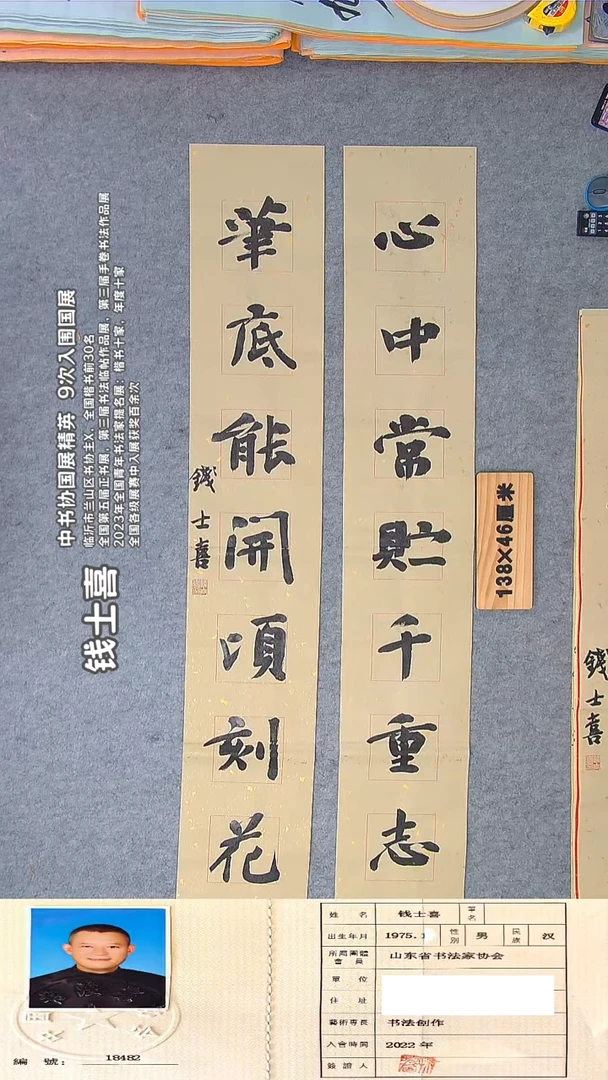 心中常貯千重志
筆底能開頃刻花
錢士喜
138×46厘米
錢士喜
钱士喜
中书协国展精英 9次入围国展
临沂市兰山区书协主X、全国楷书前30名
全国第五届正书展，第三届书法临帖作品展，第三届手卷书法作品展
2023年全国青年书法家提名展；楷书十家，年度十家
全国各级展赛中入展获奖百余次
編 號： 18482
姓 名 钱士喜 筆名
出生年月 1975. 性別 男 民族 汉
所屬團體會員 山东省书法家协会
單 位
住 址
藝術專長 书法创作
入會時間 2022 年
簽證人